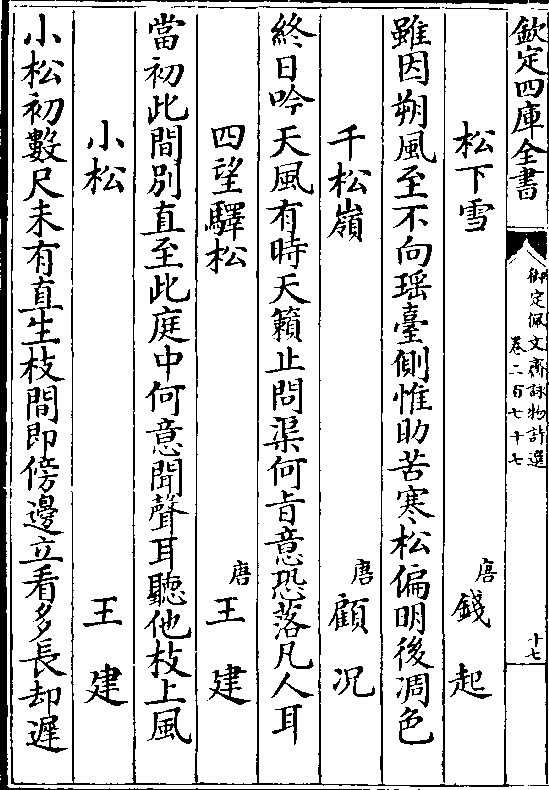 欽定四庫全書
御定佩文齋詠物詩選
卷二百七十七
十七
松下雪
唐錢起
雖因朔風至不向瑶臺側惟助苦寒松偏明後凋色
千松嶺
唐顧况
終日吟天風有時天籟止問渠何旨意恐落凡人耳
四望驛松
唐王建
當初此間别直至此庭中何意聞聲耳聽他枝上風
小松
王建
小松初數尺未有直生枝間即傍邊立看多長却遲